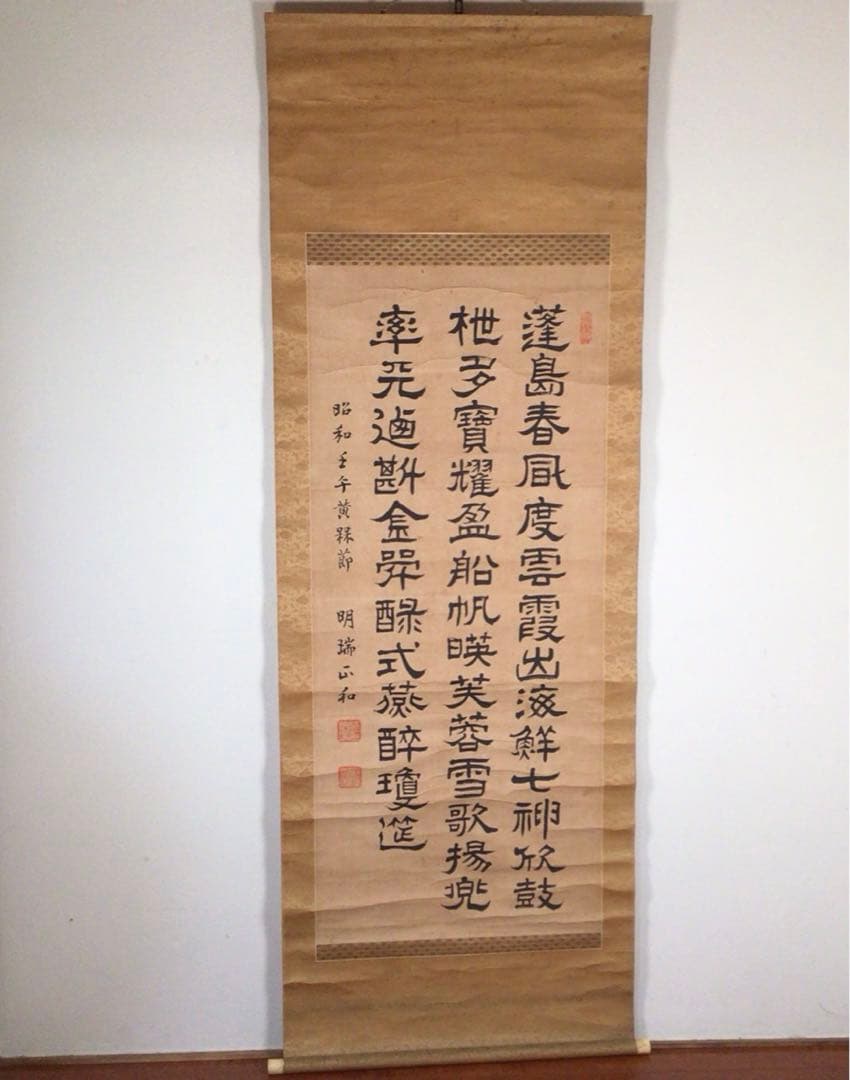 蓬島春風度雲霞出海鮮七神欣鼓
枻多寶耀盈船帆暎芙蓉雪歌揚兜
率天逌斟金斝醁式燕醉瓊筵
昭和壬午黄槑節 明瑞正和